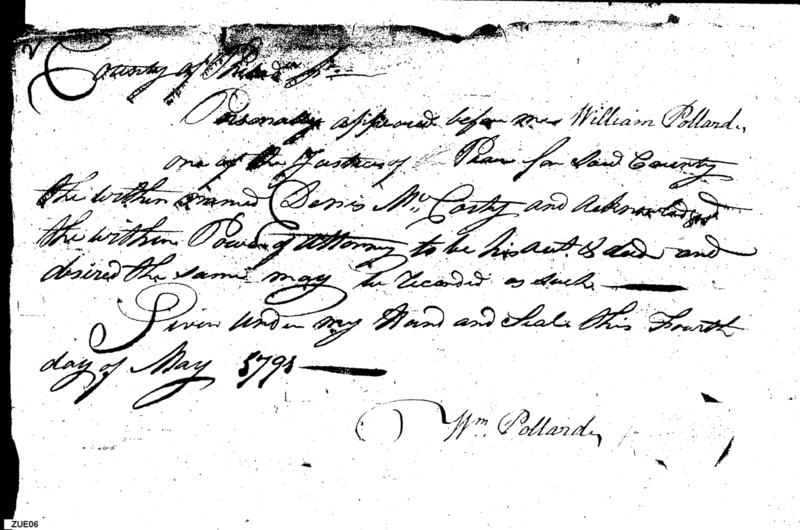 County of Philada Ss.
Personally appeared before me William Pollard
one of the Justices of Peace for said County
the within named Denis McCarty and acknowledged
the within Power of Attorney to be his act & deed and
desired the same may be recorded as such
Given under my Hand and Seal this Fourth
day of May
Wm. Pollard
ZUE06